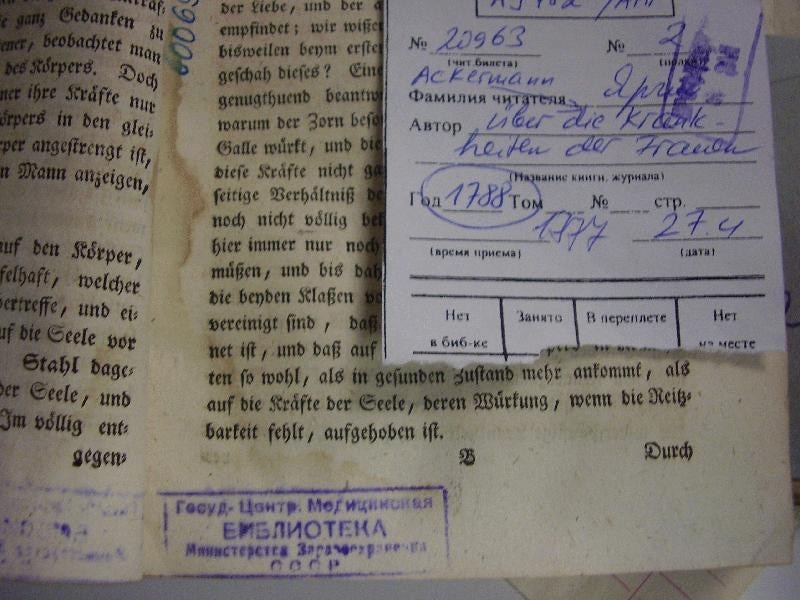 ganz Gedanken zu
beobachtet man
des Körpers. Doch
ner ihre Kräfte nur
örpers in den glei-
rper angestrengt ist,
n Mann anzeigen,
auf den Körper,
felhaft, welcher
bertreffe, und ei-
uf die Seele vor
Stahl dage-
der Seele, und
Im völlig ent-
gegen-
der Liebe, und der
empfindet; wir
bisweilen beym
geschah dieses? Eine
genugthuend
warum der Zorn
Galle würkt, und die
diese Kräfte nicht
seitige Verhältniß
noch nicht völlig
hier immer nur noch
müßen, und bis
die beyden Klaßen
vereinigt sind, daß
net ist, und daß auf
ten so wohl, als in gesunden Zustand mehr ankommt, als
auf die Kräfte der Seele, deren Würkung, wenn die Reitz-
barkeit fehlt, aufgehoben ist.
B Durch
№ 20963 № 2
(чит.билета)
Ackermann
Фамилия читателя
Автор Über die Krank-
heiten der Frauen
(Название книги, журнала)
Год 1788 Том № стр.
1977 27.4
(время приема) (дата)
Нет Занято В переплете Нет
в биб-ке на месте
Госуд- Центр. Медицинская
БИБЛИОТЕКА
Министерства Здравоохранения
СССР